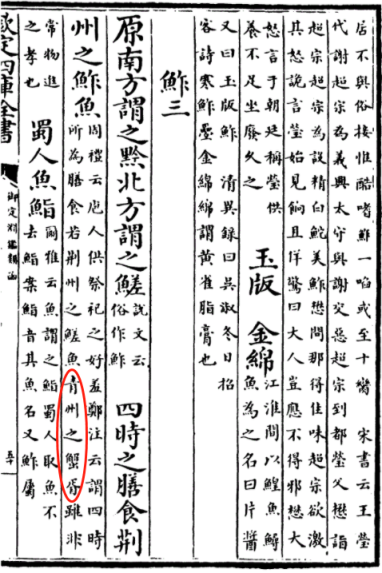 居不與俗接惟酷嗜鮓一啗或至十臠 宋書云王瑩
代謝超宗為義興太守與謝交惡超宗到都瑩父懋詣
超宗超宗為設精白美鮓懋問那得佳味超宗欲激
其怒詭言瑩始見餉且佯驚曰大人豈應不得邪懋大
怒言于朝廷稱瑩供
養不足坐廢久之
玉版 金綿
江淮間以鰉魚鱘
魚為之名曰片醬
又曰玉版鮓 清異録曰吳淑冬日招
客詩寒鮓疊金綿綿謂黃雀脂膏也
鮓三
原南方謂之黔北方謂之鮺
說文云
俗作鮓
四時之膳食荆
州之鮓魚
周禮云庖人供祭祀之好羞鄭注云謂四時
所為膳食若荆州之鮺魚青州之蟹胥雖非
常物進
之孝也
蜀人魚鮨
爾雅云魚謂之鮨蜀人取魚不
去鮨案鮨音其魚名又鮓屬
欽定四庫全書
御定淵鑑類函